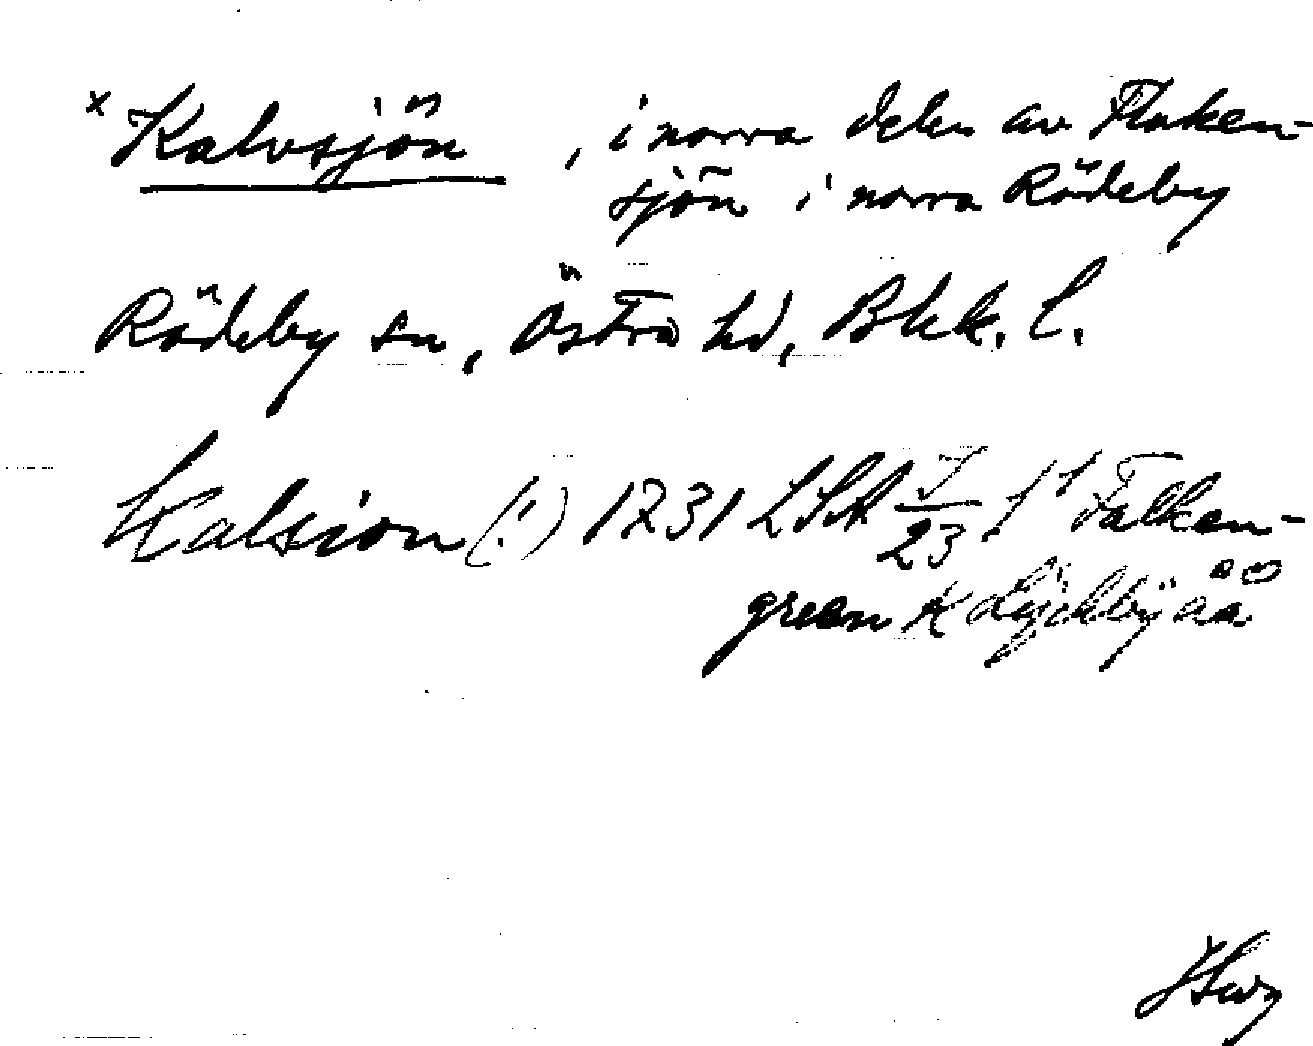 x Kalvsjön, i norra delen av Flaken-
sjön i norra Rödeby
Rödeby sn, Östra hd, Blek. l.
Kalsion (!) 1731 LSA 7/23 Falken-
green K Lÿckbÿ åå